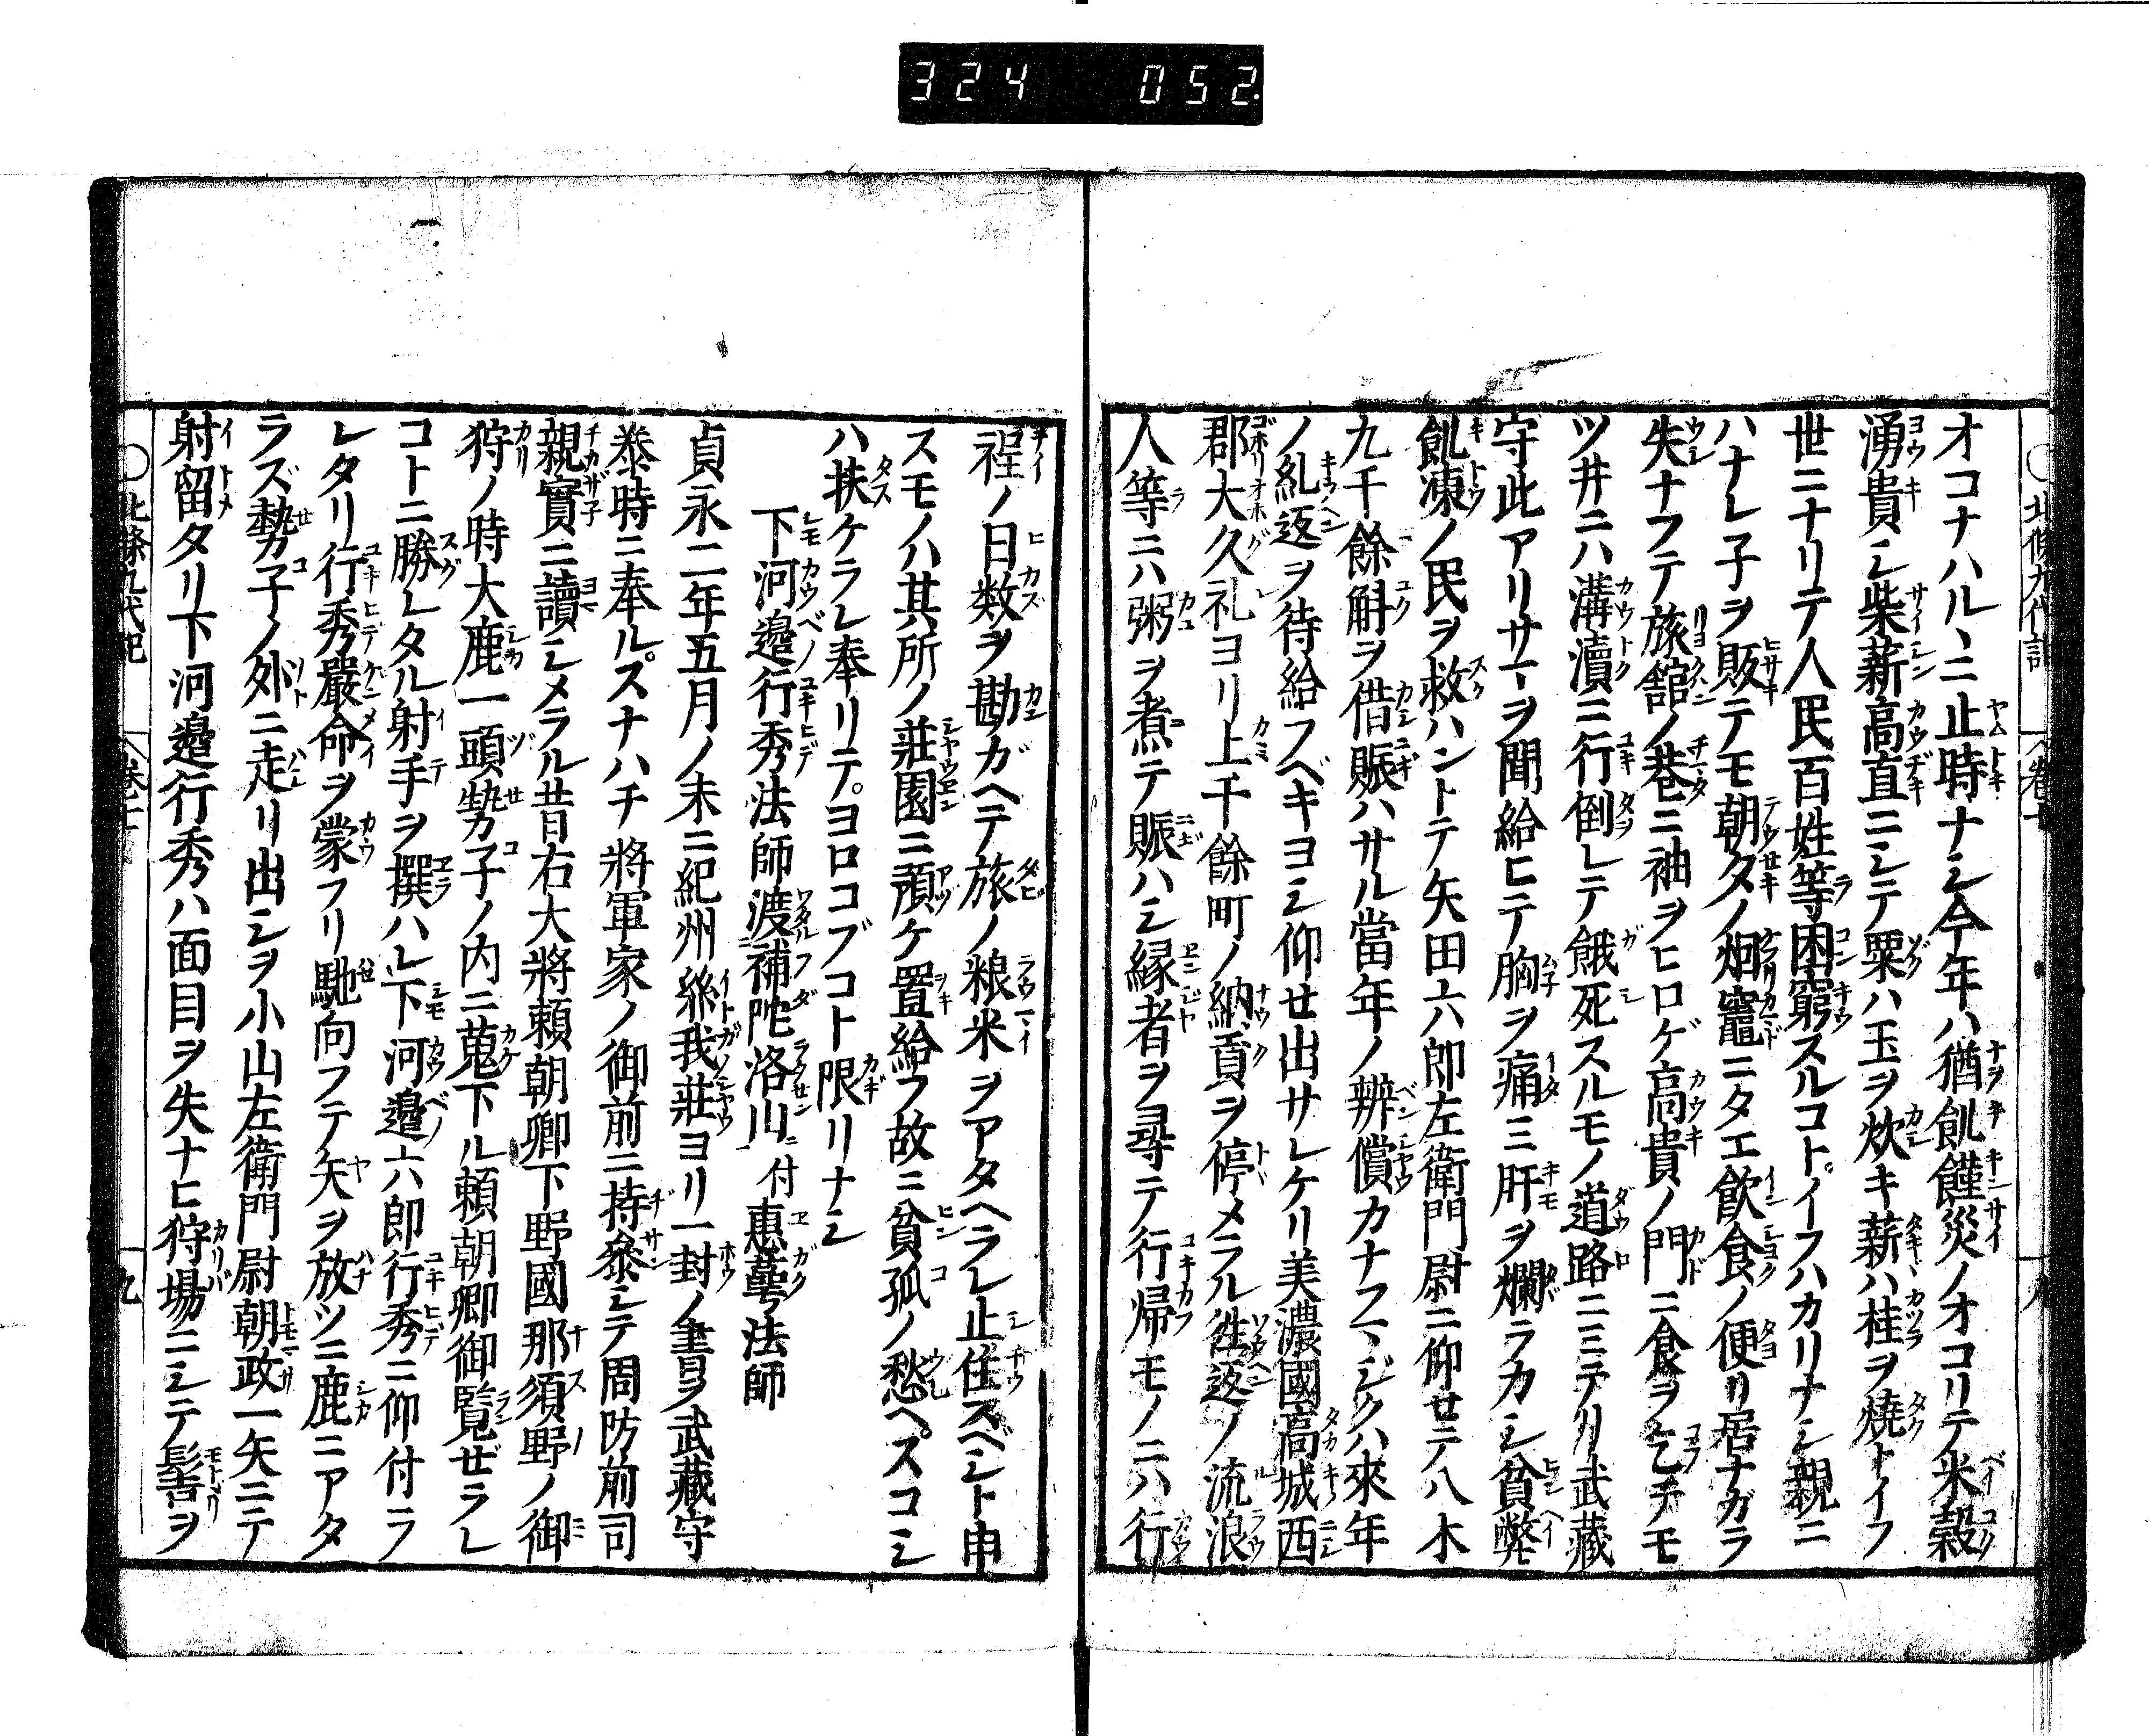 324 052
オコナハルヽニ止時ナシ今年ハ猶飢饉災ノオコリテ米穀
湧貴シ柴薪高直ニシテ粟ハ玉ヲ炊キ薪ハ桂ヲ焼トイフ
世ニナリテ人民百姓等困窮スルコトイフハカリナシ親ニ
ハナレ子ヲ販テモ朝夕ノ烟竈ニタエ飲食ノ便リ居ナガラ
失ナフテ旅舘ノ巷ニ袖ヲヒロゲ高貴ノ門ニ食ヲ乞チモ
ツ井ニハ溝瀆ニ行倒レテ餓死スルモノ道路ニミテリ武藏
守此アリサマヲ聞給ヒテ胸ヲ痛ミ肝ヲ爛ラカシ貧弊
飢凍ノ民ヲ救ハントテ矢田六郎左衛門尉ニ仰せテ八木
九千餘斛ヲ借賑ハサル當年ノ辨償カナフマジクハ來年
ノ糺返ヲ待給フベキヨシ仰せ出サレケリ美濃國高城西
郡大久礼ヨリ上千餘町ノ納貢ヲ停メラル徃返ノ流浪
人等ニハ粥ヲ煮テ賑ハシ縁者ヲ尋テ行帰モノニハ行
程ノ日数ヲ勘ガヘテ旅ノ粮米ヲアタヘラレ止住スベシト申
スモノハ其所ノ莊園ニ預ケ置給フ故ニ貧孤ノ愁ヘスコシ
ハ扶ケラレ奉リテ。ヨロコブコト限リナシ
下河邉行秀法師渡補陀洛山ニ付惠蕚法師
貞永二年五月ノ末ニ紀州絲我莊ヨリ一封ノ書ヲ武藏守
泰時ニ奉ル。スナハチ將軍家ノ御前ニ持參シテ周防前司
親實ニ讀シメラル昔右大將頼朝卿下野國那須野ノ御
狩ノ時大鹿一頭勢子ノ内ニ蒐下ル頼朝卿御覧ぜラレ
コトニ勝レタル射手ヲ撰ハレ下河邉六郎行秀ニ仰付ラ
レタリ行秀嚴命ヲ蒙フリ馳向フテ矢ヲ放ツニ鹿ニアタ
ラズ勢子ノ外ニ走リ出シヲ小山左衛門尉朝政一矢ニテ
射留タリ下河邉行秀ハ面目ヲ失ナヒ狩場ニシテ髻ヲ
○北條九代記 卷七 九